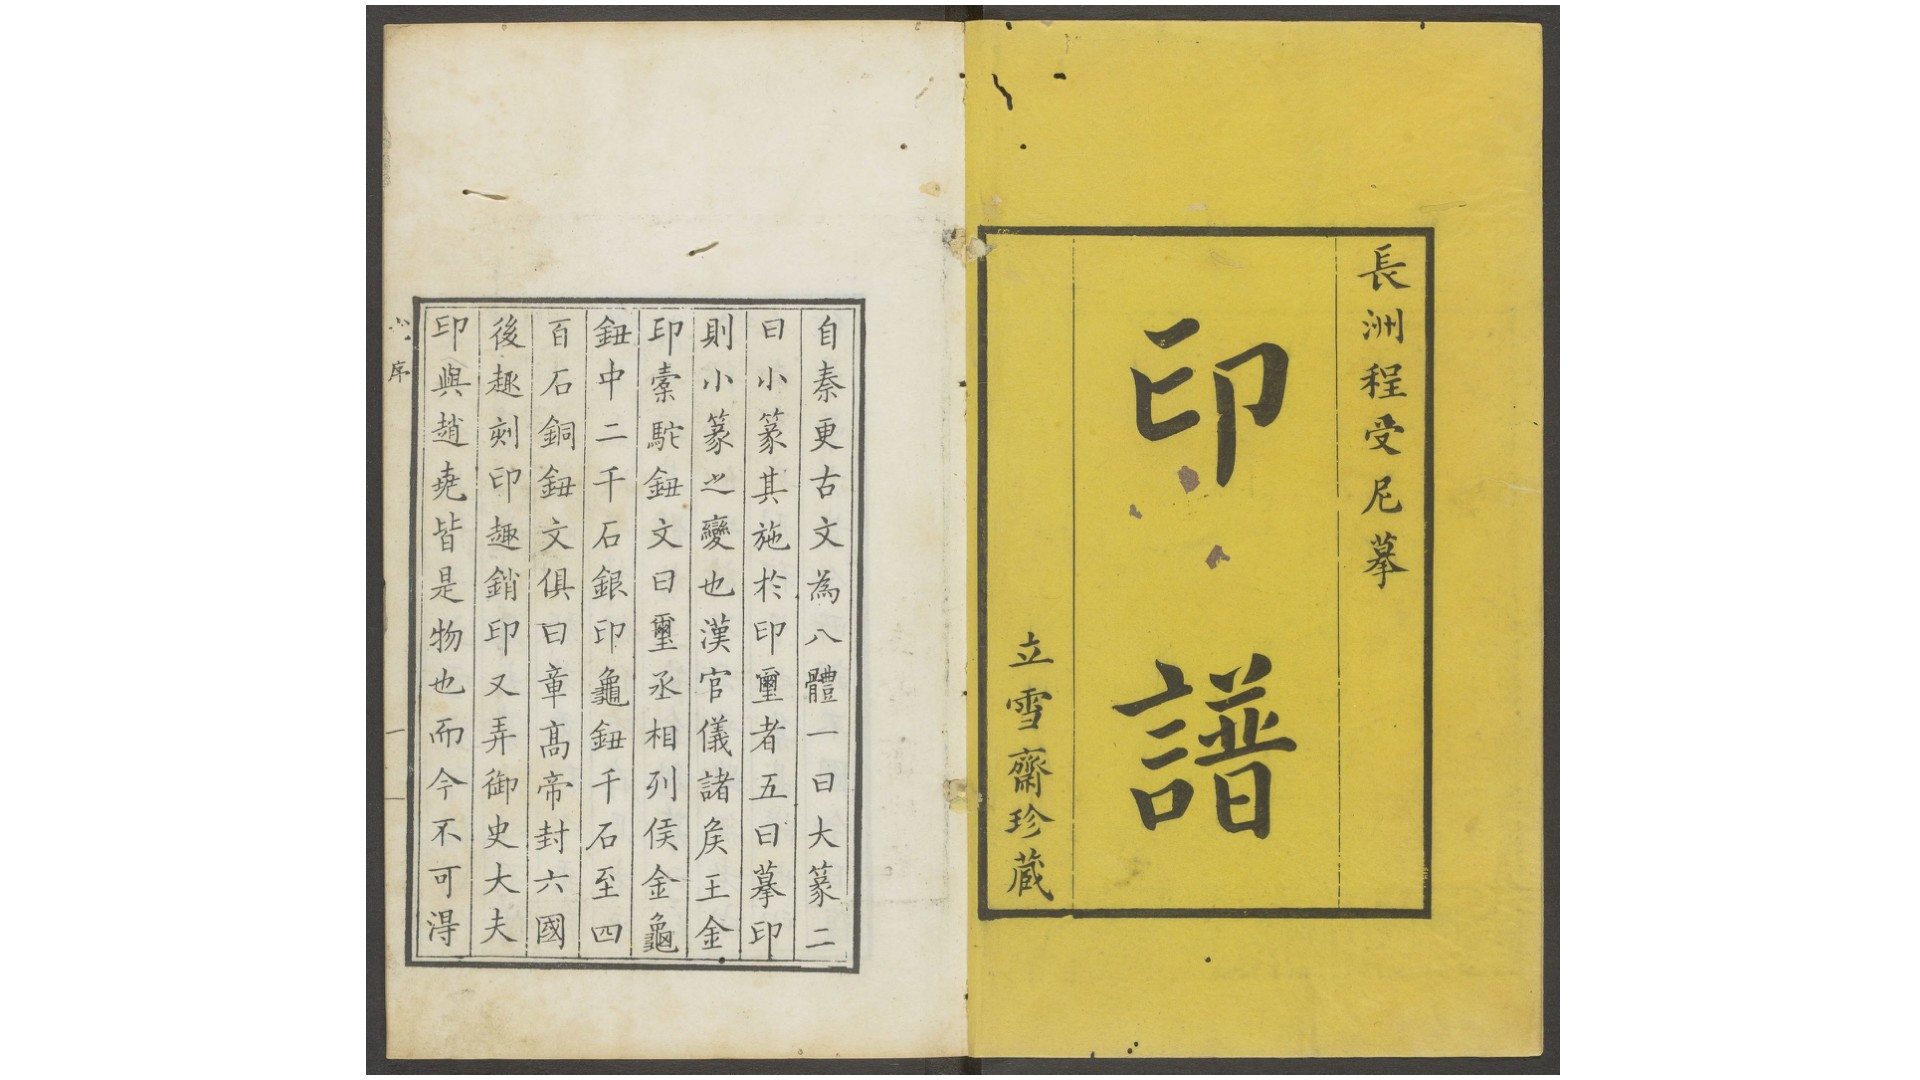 長洲程受尼摹
印譜
立雪齋珍蔵
自秦更古文為八體一曰大篆二
曰小篆其施於印璽者五曰摹印
則小篆之變也漢官儀諸矦王金
印橐駝鈕文曰璽丞相列侯金龜
鈕中二千石銀印龜鈕千石至四
百石銅鈕文俱曰章高帝封六國
後趣刻印趣銷印又弄御史大夫
印與趙堯皆是物也而今不可得
序
一